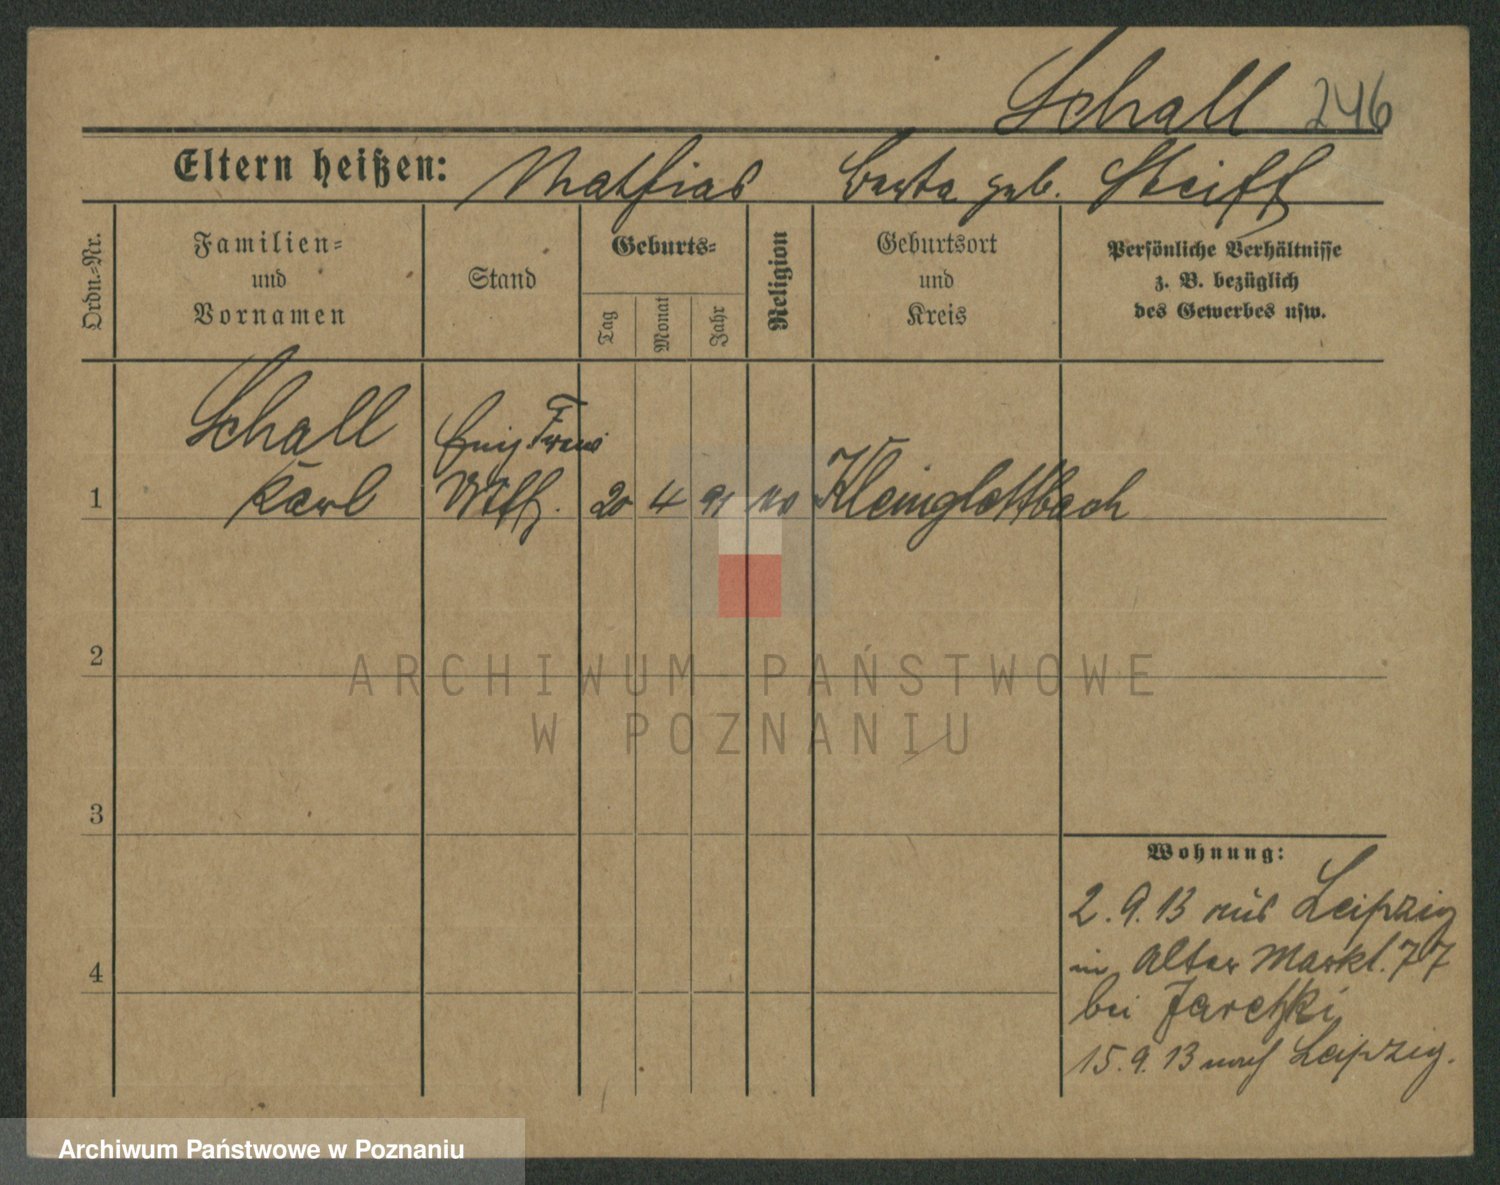 Schall 246
Eltern heißen: Mathias Berta geb. Steiff
Ordn.=Nr.
Familien=
und
Vornamen
Stand
Geburts=
Tag
Monat
Jahr
Religion
Geburtsort
und
Kreis
Persönliche Verhältnisse
z. B. bezüglich
des Gewerbes usw.
Schall
Karl
1
20 4 91
Kleinglattbach
2
ARCHIWUM PAŃSTWOWE
W POZNANIU
3
Wohnung:
2.9.13 aus Leipzig
in Alter Markt. 77
bei Jaretzki
4
15.9.13 nach Leipzig.
Archiwum Państwowe w Poznaniu